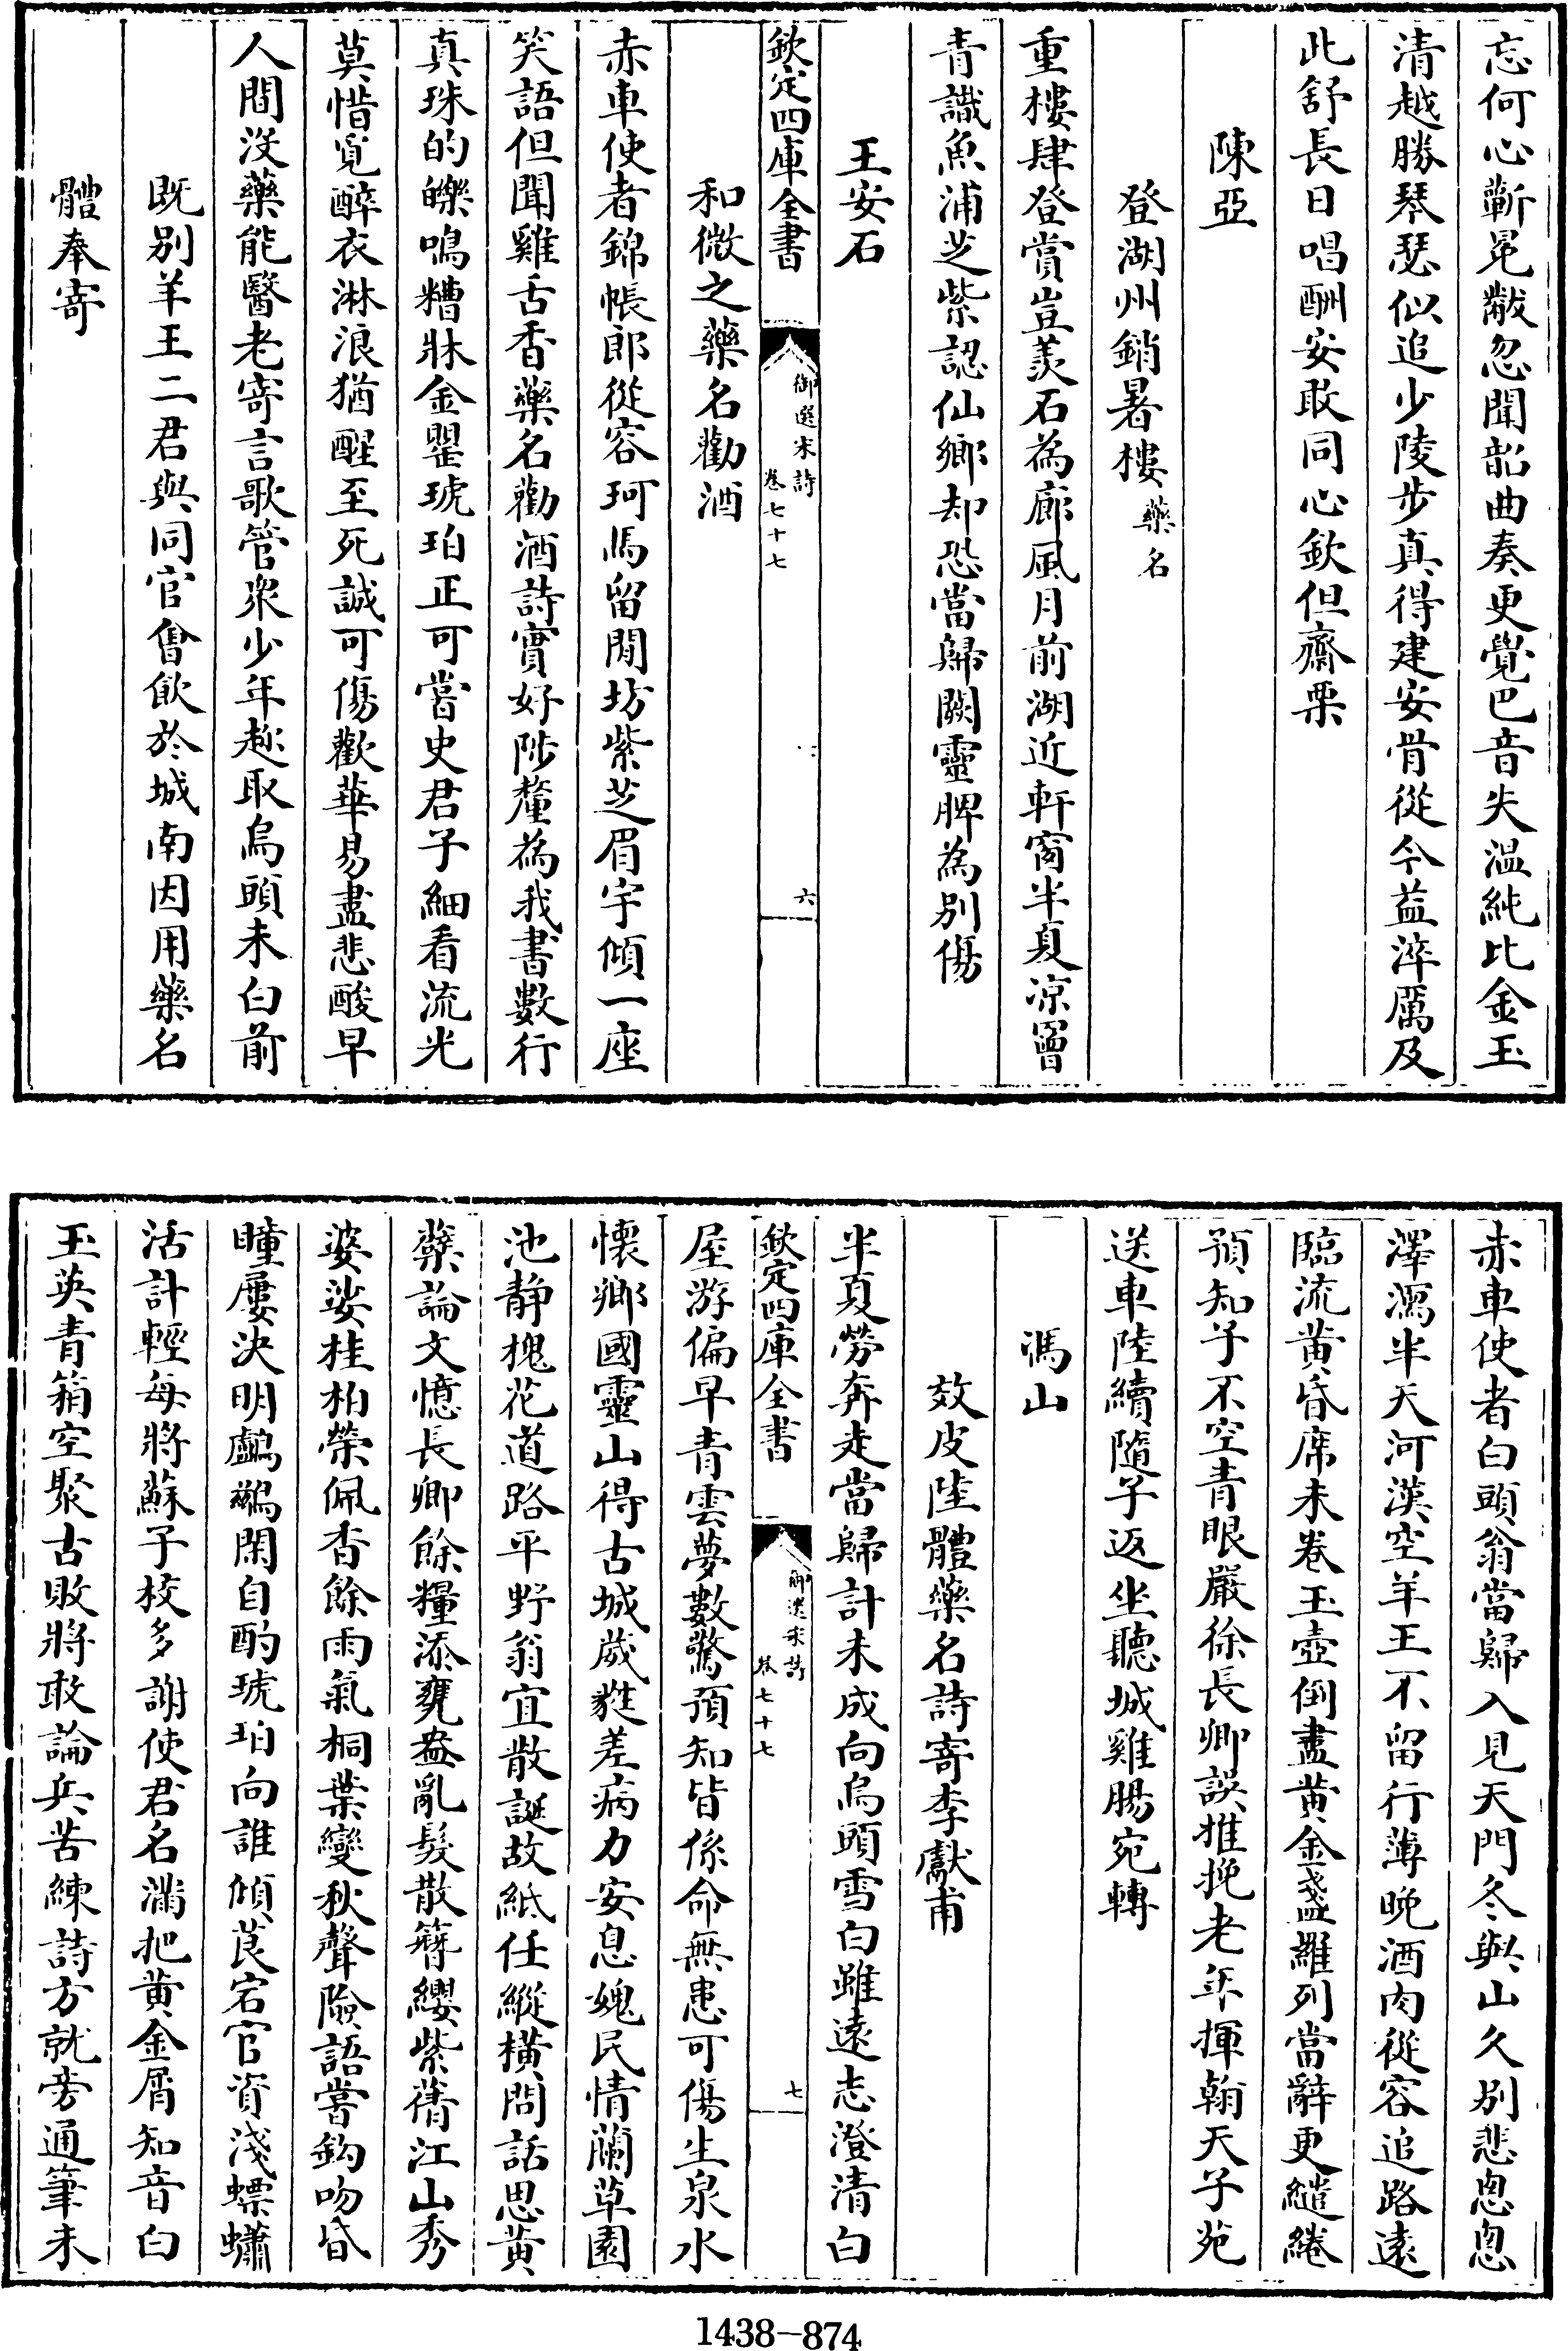 忘何心蘄冕黻忽聞韶曲奏更覺巴音失溫純比金玉
清越勝琴瑟似追少陵步真得建安骨從今益淬厲及
此舒長日唱酬安敢同心欽但齋栗
陳亞
登湖州銷暑樓藥名
重樓肆登賞豈羡石為廊風月前湖近軒窗半夏凉罾
青識魚浦芝紫認仙鄉却恐當歸闕靈脾為別傷
王安石
欽定四庫全書
御選宋詩
卷七十七
六
和微之藥名勸酒
赤車使者錦帳郎從容珂馬留閒坊紫芝眉宇傾一座
笑語但聞雞舌香藥名勸酒詩實好陟釐為我書數行
真珠的皪鳴糟牀金罌琥珀正可嘗史君子細看流光
莫惜覓醉衣淋浪猶醒至死誠可傷歡華易盡悲酸早
人間沒藥能醫老寄言歌管衆少年趂取烏頭未白前
既別羊王二君與同官會飲於城南因用藥名
體奉寄
赤車使者白頭翁當歸入見天門冬與山久別悲悤悤
澤瀉半天河漢空羊王不留行薄晚酒肉從容追路遠
臨流黄昏席未卷玉壺倒盡黄金盞羅列當辭更繾綣
預知子不空青眼嚴徐長卿誤推挽老年揮翰天子苑
送車陸續隨子返坐聽城雞腸宛轉
馮山
效皮陸體藥名詩寄李獻甫
半夏勞奔走當歸計未成向烏頭雪白雖遠志澄清白
欽定四庫全書
御選宋詩
卷七十七
七
屋游偏早青雲夢數驚預知皆係命無患可傷生泉水
懷鄉國靈山得古城葳蕤差病力安息媿民情蘭草園
池静槐花道路平野翁宜散誕故紙任縱橫問話思黄
蘗論文憶長卿餘糧添甕盎亂髮散簪纓紫葍江山秀
婆娑桂柏榮佩香餘雨氣桐葉變秋聲險語嘗鈎吻昏
瞳屢決明鸕鷀閑自酌琥珀向誰傾莨宕官資淺螵蟰
活計輕每將蘇子校多謝使君名滿把黄金屑知音白
玉英青箱空聚古敗將敢論兵苦練詩方就旁通筆未
1438-874